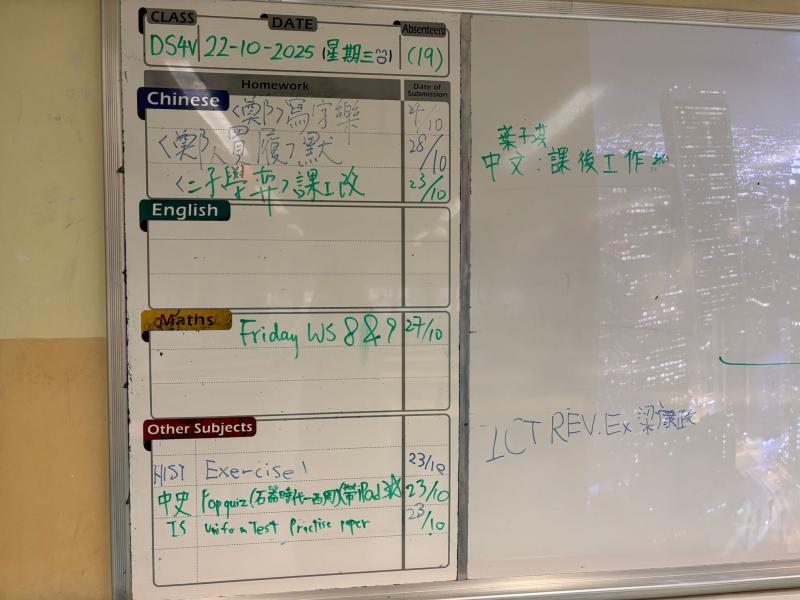 CLASS DATE Absentees
DS4V 22-10-2025 (星期三) (19)
Homework Date of Submission
Chinese
〈鄭〉寫字樂 27/10
〈鄭人買履〉默 28/10
〈二子學弈〉課工改 23/10
English
Maths
Friday WS 8 & 9 27/10
Other Subjects
HIST Exercise 1 23/10
中史 Pop quiz (石器時代-西周)(帶iPad) 23/10
IS Uniform Test Practise paper 23/10
葉子
中文:課後工作紙
ICT REV.Ex 梁